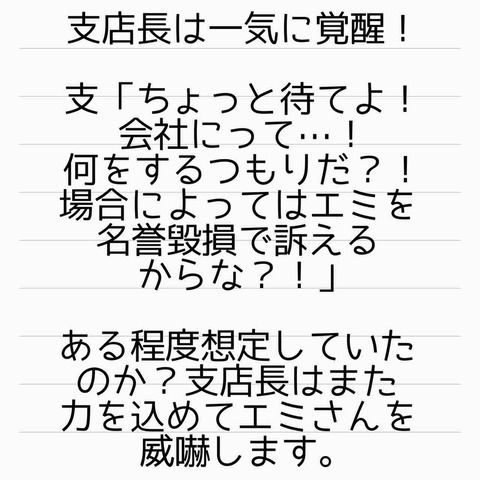 支店長は一気に覚醒！
支「ちょっと待てよ！
会社にって…！
何をするつもりだ？！
場合によってはエミを
名誉毀損で訴える
からな？！」
ある程度想定していた
のか？支店長はまた
力を込めてエミさんを
威嚇します。